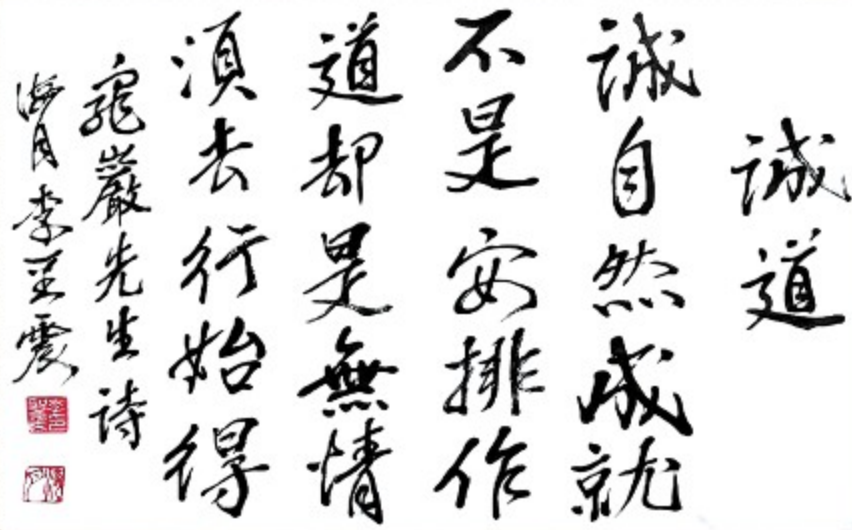 誠道
誠自然成就
不是安排作
道却是無情
須去行始得
龜巖先生詩
海月李至震